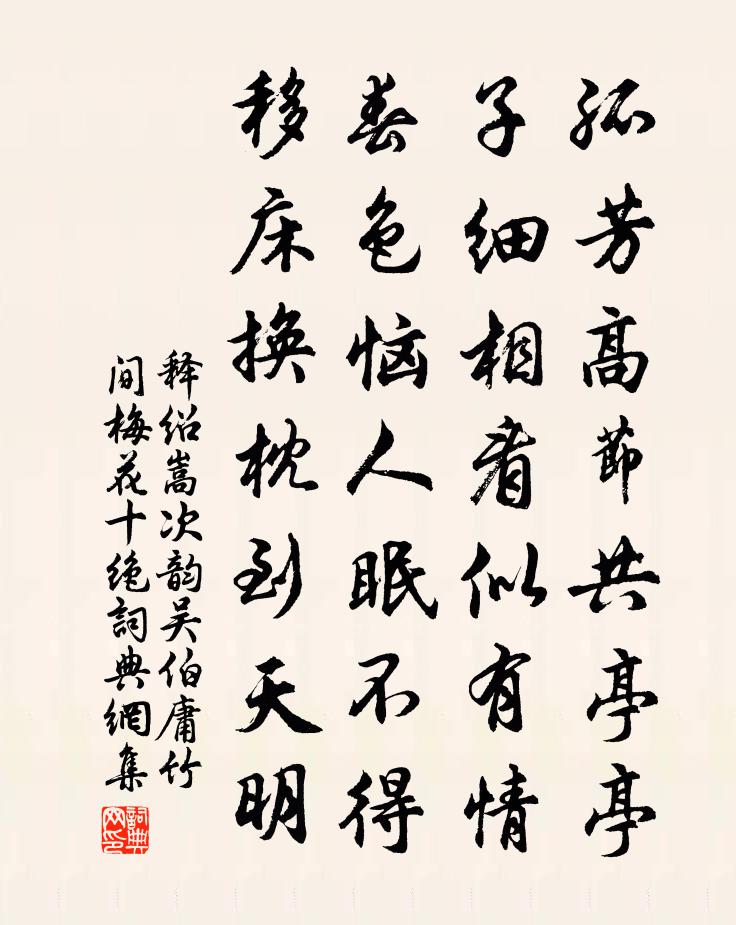 孤芳高節共亭亭
子细相看似有情
春色恼人眠不得
移床换枕到天明
释绍嵩次韵吴伯庸竹
间梅花十绝詞典網集
詞典
网印